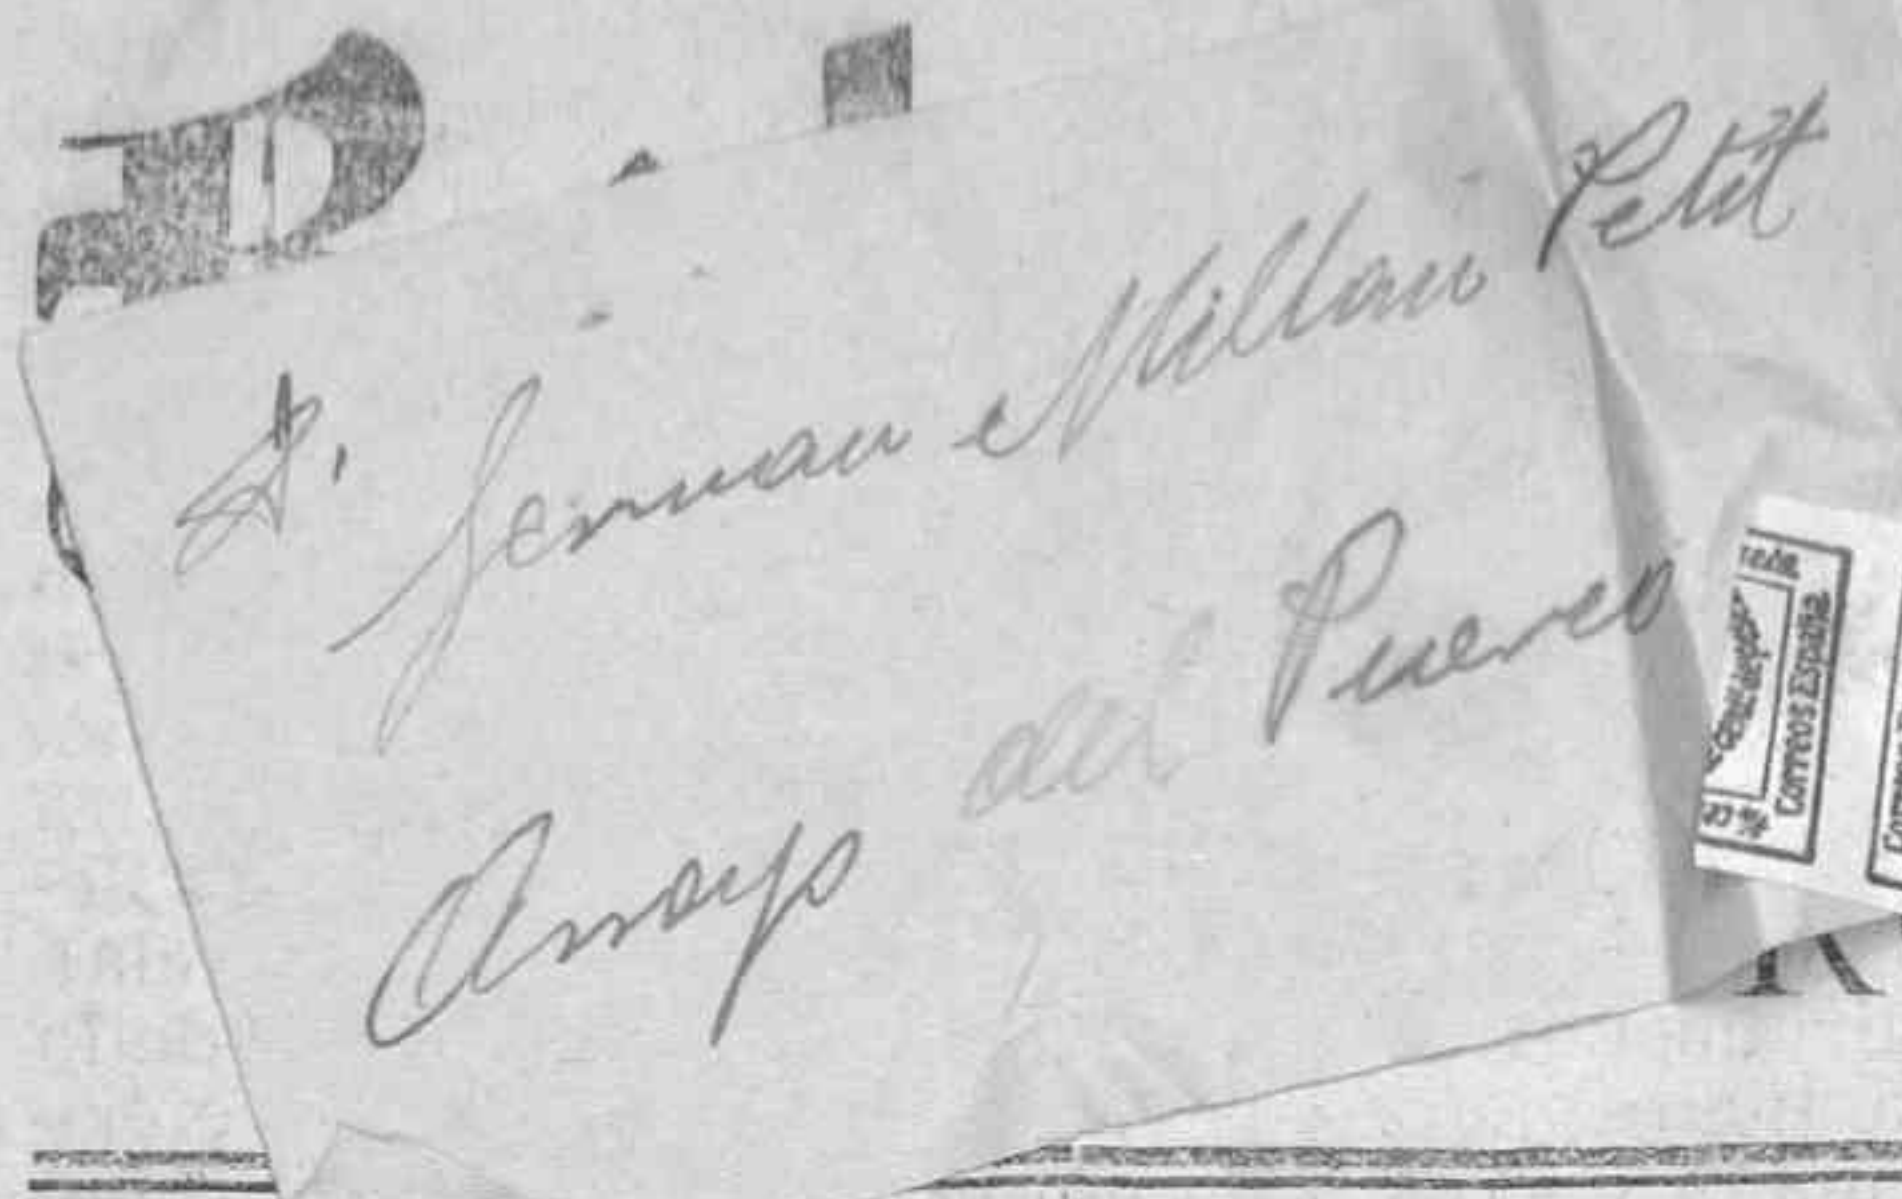 D. German Millan Petit
Arroyo del Puerco
Correos España